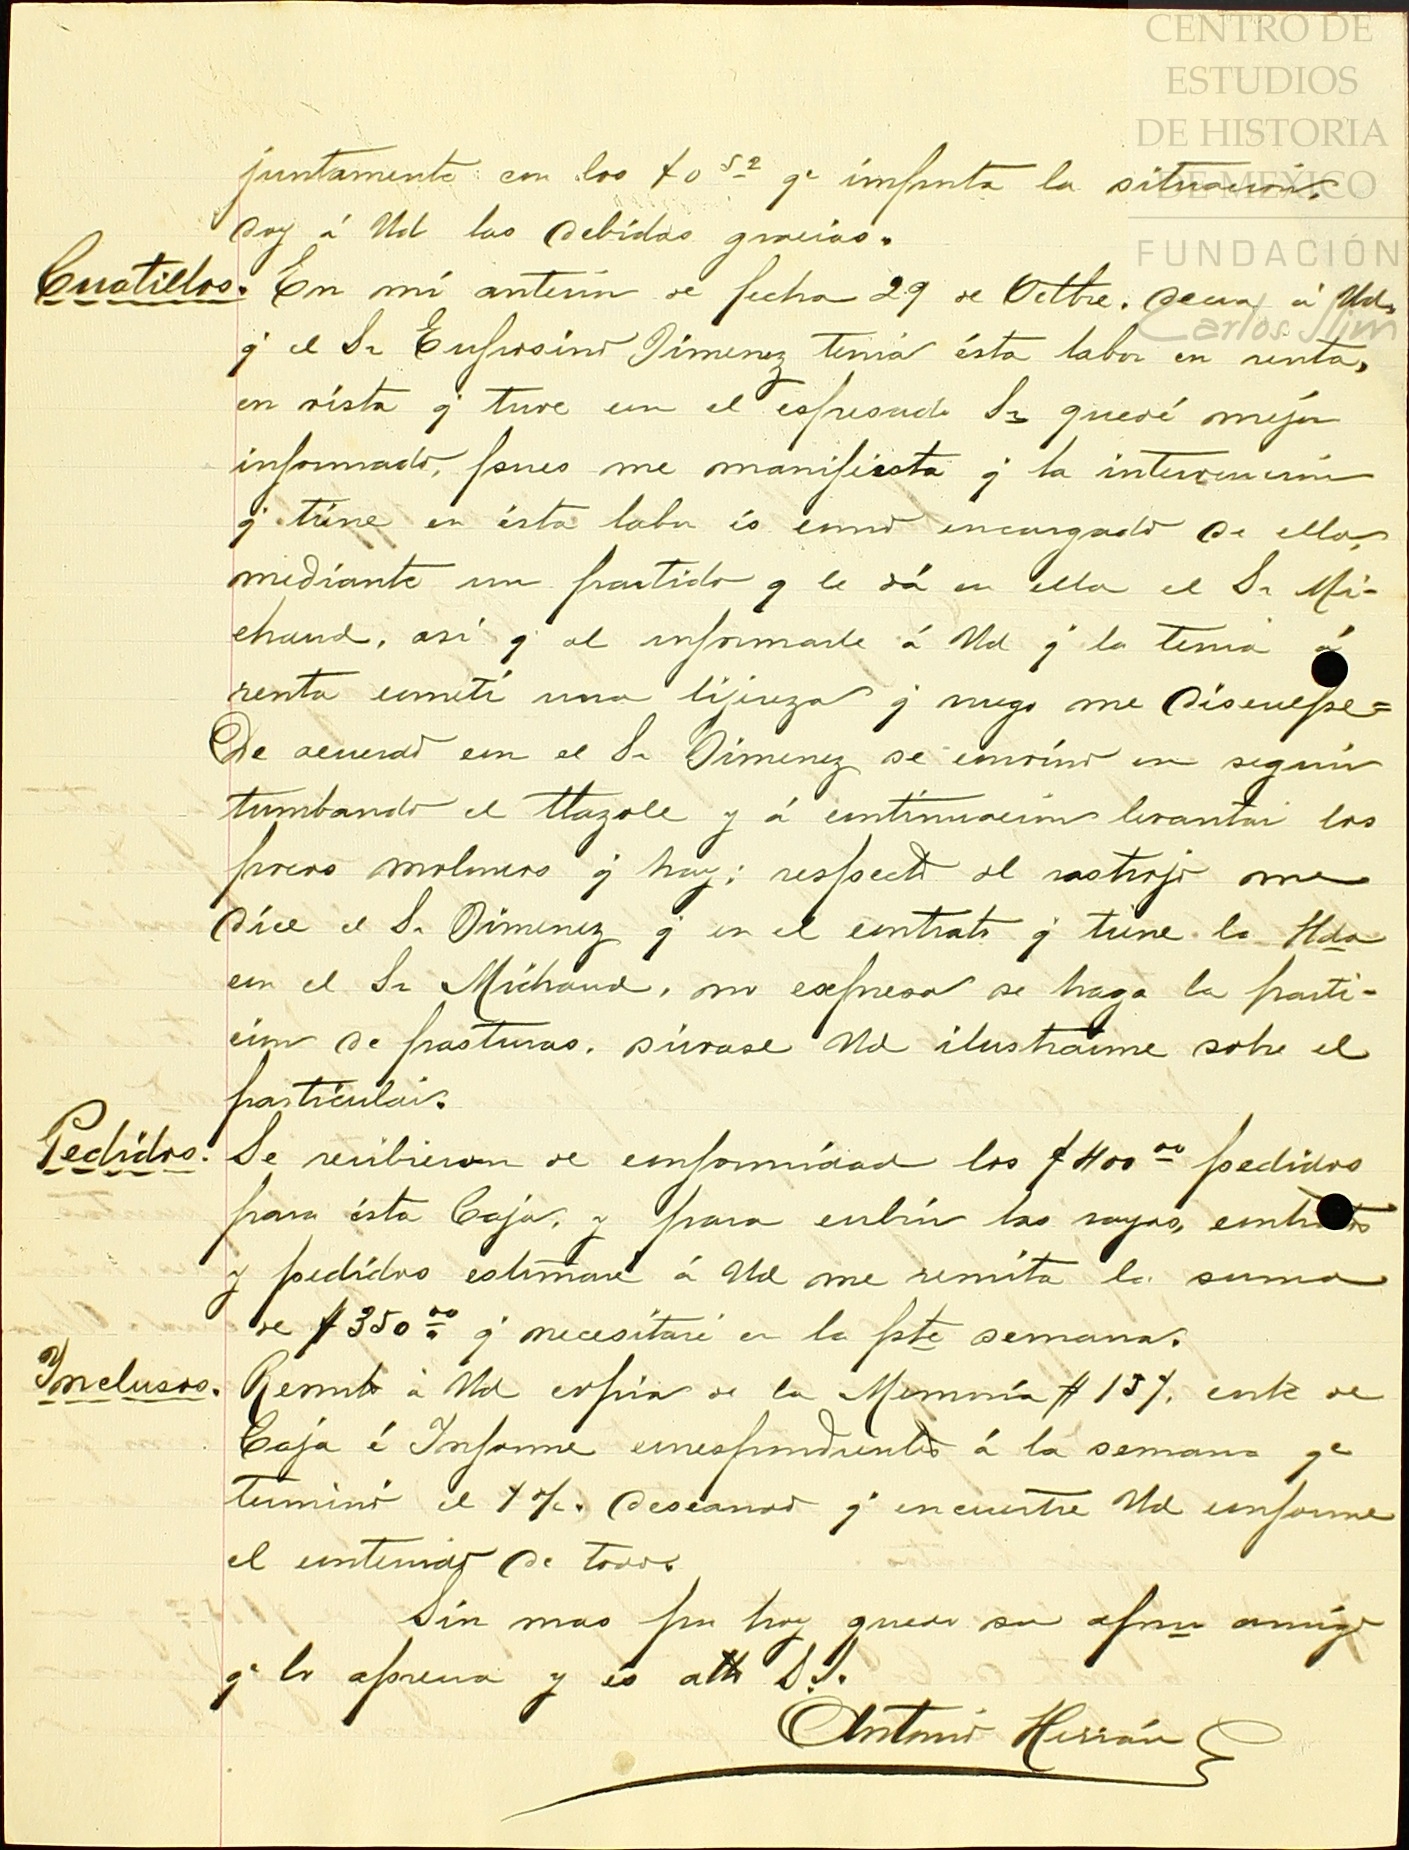 CENTRO DE
ESTUDIOS
DE HISTORIA
DE MÉXICO
FUNDACIÓN
Carlos Slim
juntamente con los $0 52 qe importa la situacion.
doy á Ud las debidas gracias.
Cuatillos. En mi anterior de fecha 29 de Octbre. decia á Ud.
q' el Sr Eufrosino Jimenez tenia ésta labor en renta,
en vista q' tuve con el espresado Sr quedé mejor
informado, pues me manifiesta q' la intervencion
q' tiene en ésta labor és como encargado de ella,
mediante un partido q le dá en ella el Sr Mi-
chaud, asi q' al informarle á Ud q' la tenia á
renta cometí una lijereza q' ruego me disculpe=
De acuerdo con el Sr Jimenez se convino en seguir
tumbando el tlazole y á continuacion levantar los
pocos molonco​s q' hay; respecto al rastrojo me
dice el Sr Jimenez q' en el contrato q' tiene la Hda
con el Sr Michaud, no expresa se haga la parti-
cion de pasturas. sirvase Ud ilustrarme sobre el
particular.
Pedidos. Se recibieron de conformidad los $400 00 pedidos
para ésta Caja, y para cubrir las rayas, contratos
y pedidos estimaré á Ud me remita la suma
de $350 00 q' necesitaré en la pte semana.
Inclusos. Remito á Ud copia de la Memoria # 157. corte de
Caja é Informe correspondientes á la semana qe
terminó el 7 %. deseando q' encuentre Ud conforme
el contenido de todo.
Sin mas por hoy quedo su afmo amigo
qe lo aprecia y es atto S.S.
Antonio Herrán